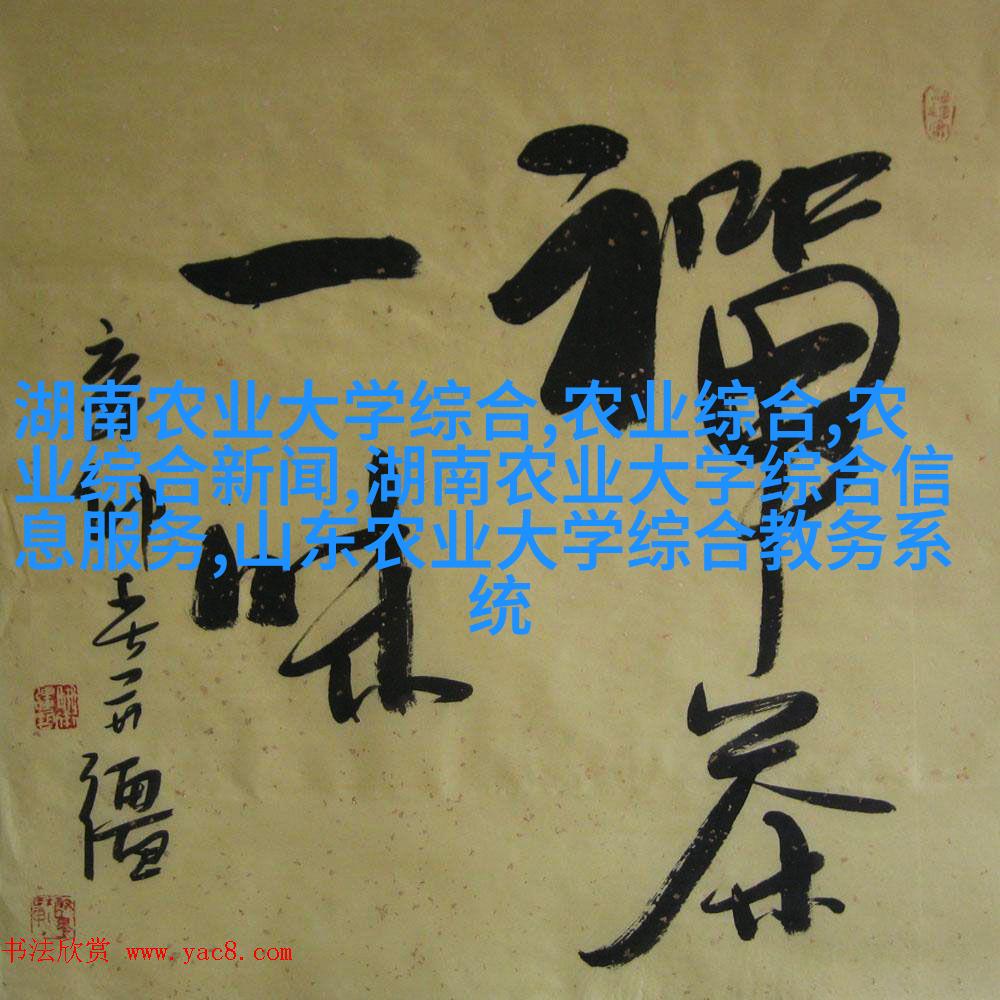 禪茶
一味
湖南农业大学综合,农业综合,农
业综合新闻,湖南农业大学综合信
息服务,山东农业大学综合教务系
统
书法欣赏 www.yac8.com